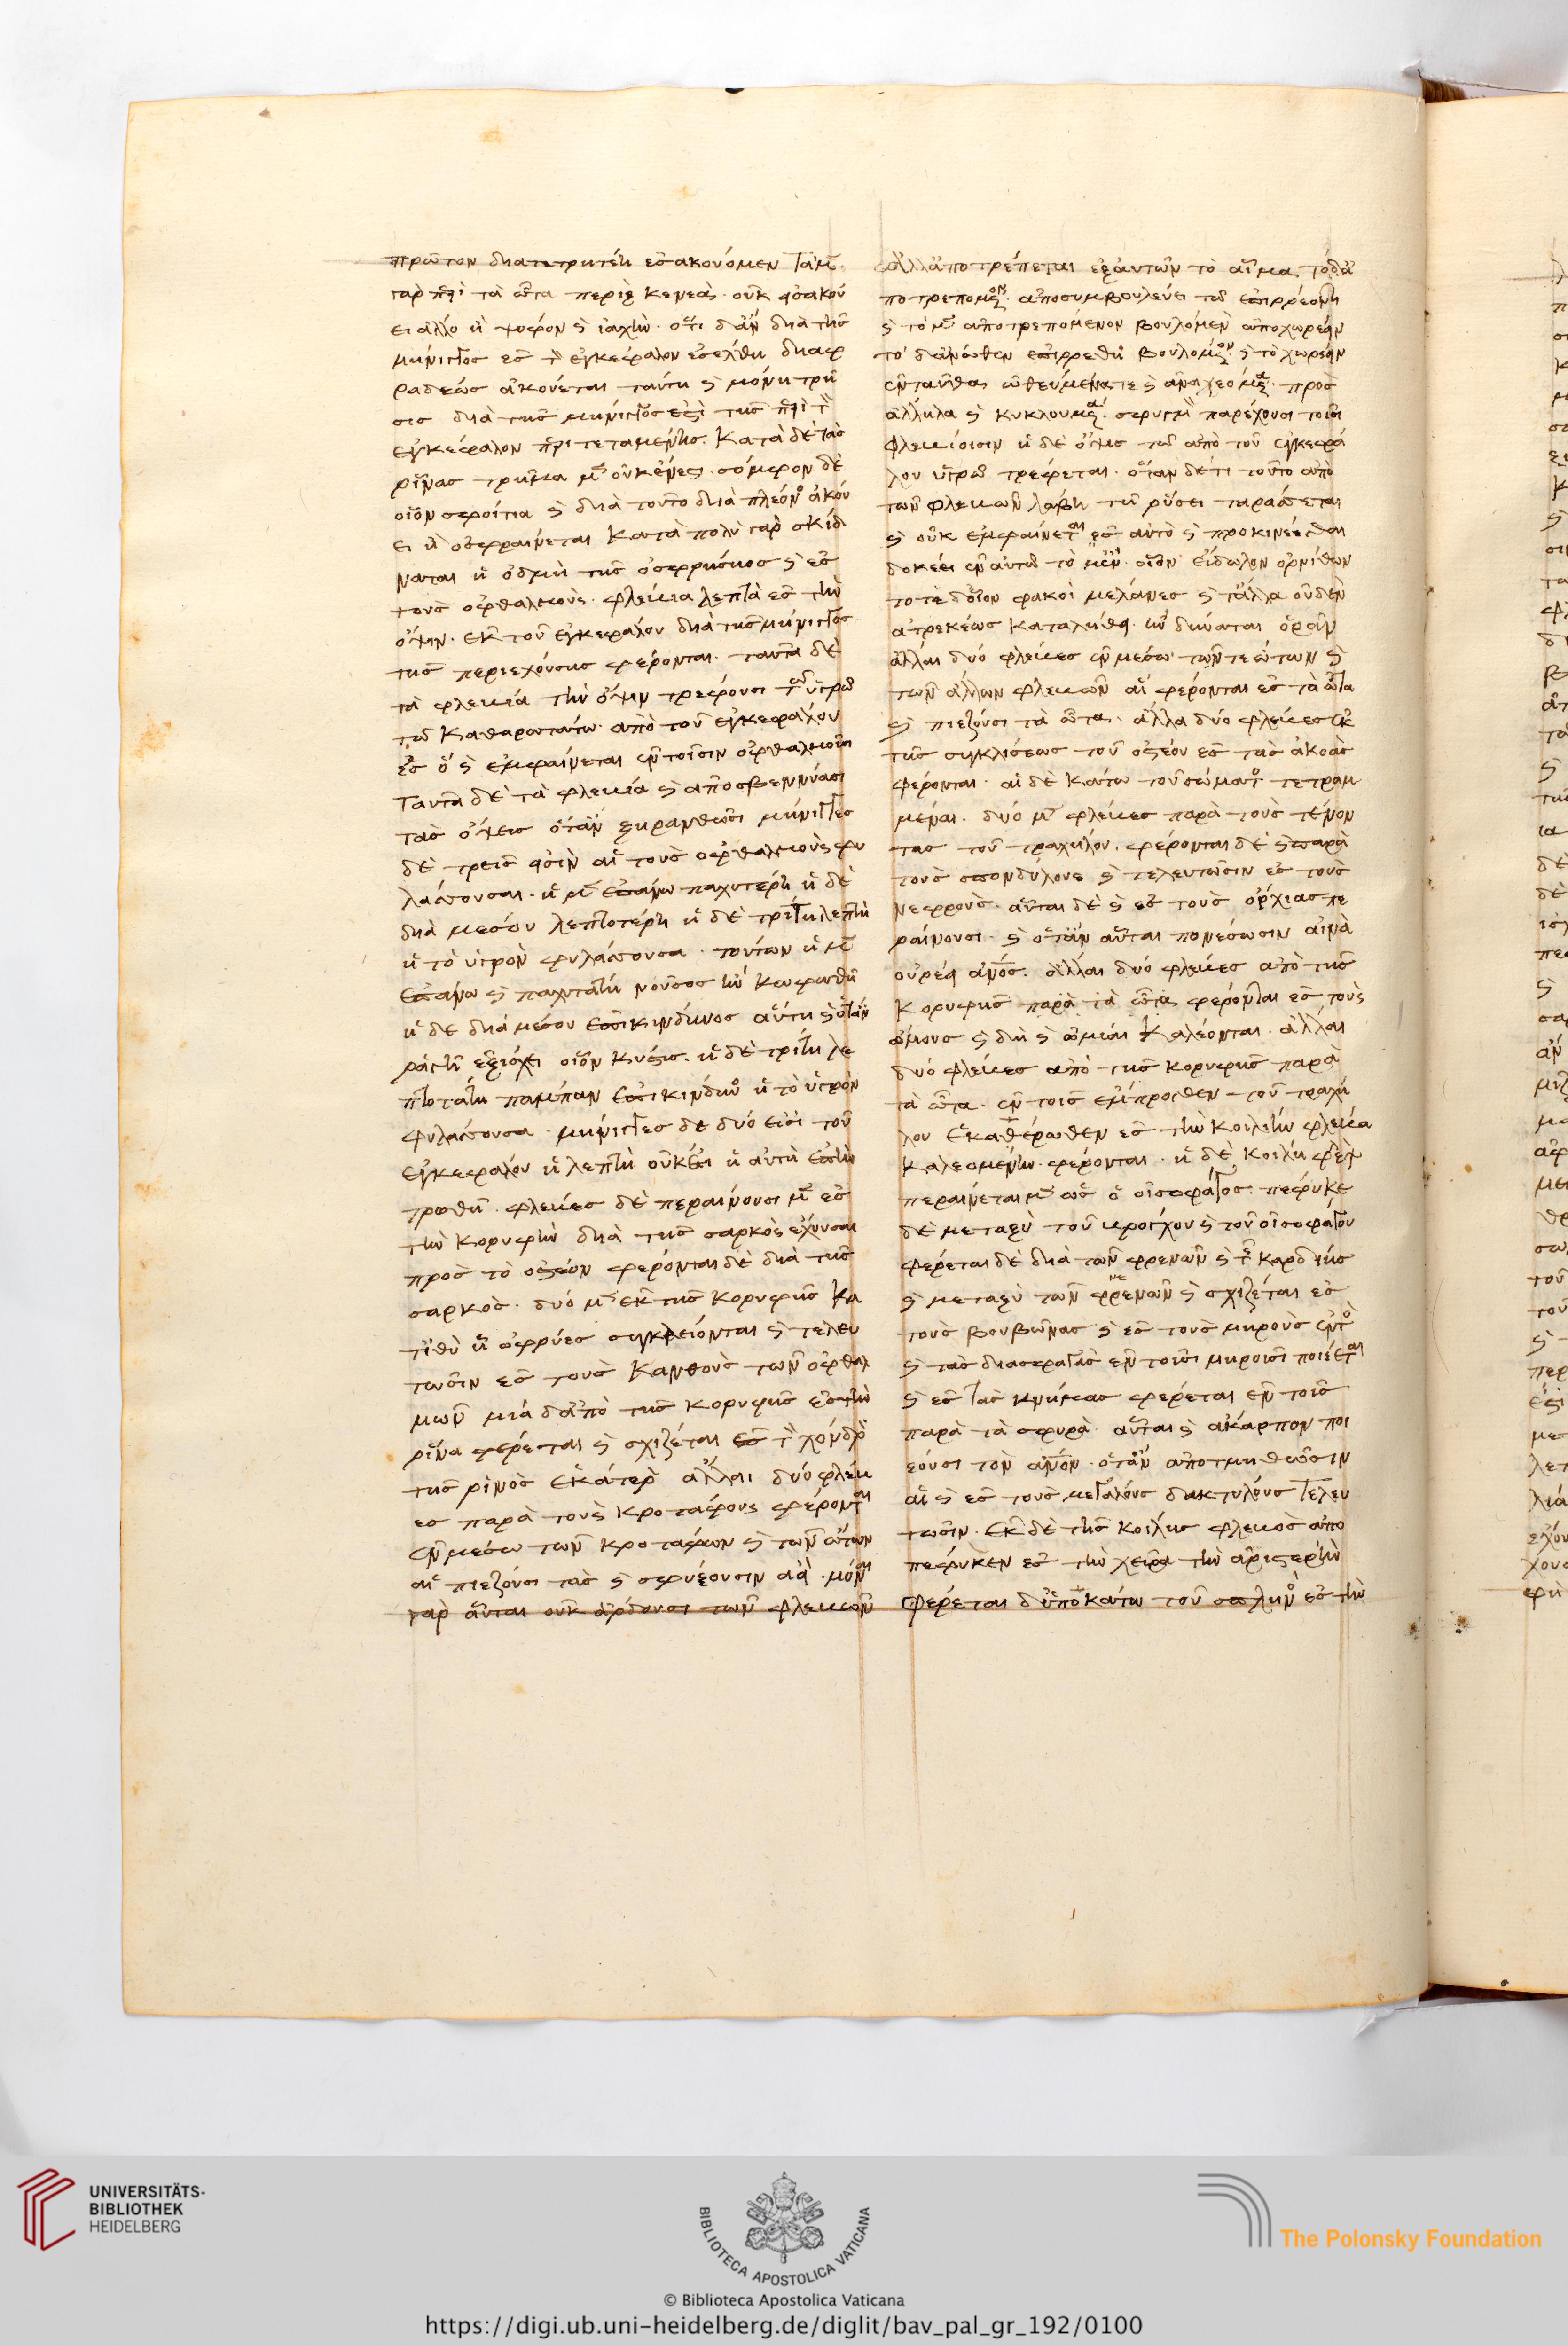 πρῶτον διατετρηται ἐσακούομεν τὰ μὲν
γὰρ περὶ τὰ ὦτα περιὲξ κενεὰ οὐκ ἐσακού
ει ἄλλο ἢ ψόφον καὶ ἰαχὴν ὅτι δ' ἂν διὰ τῆς
μήνιγγος ἐς τὸν ἐγκέφαλον ἐσέλθη διαφ
ραδέως ἀκούεται ταύτη καὶ μόνη τρῆ
σις διὰ τῆς μήνιγγος ἐστὶ τῆς περὶ τὸν
ἐγκέφαλον περιτεταμένης κατὰ δὲ τὰς
ῥῖνας τρῆμα μὲν οὐκ ἔνεστι σομφὸν δὲ
οἷον σπογγία καὶ διὰ τοῦτο διὰ πλέονος ἀκού
ει ἢ ὀσφραίνεται κατὰ πολὺ γὰρ σκίδ
ναται ἡ ὀδμὴ τῆς ὀσφρήσιος καὶ ἐς
τοὺς ὀφθαλμοὺς φλέβια λεπτὰ ἐς τὴν
ὄψιν ἐκ τοῦ ἐγκεφάλου διὰ τῆς μήνιγγος
τῆς περιεχούσης φέρονται ταῦτα δὲ
τὰ φλεβία τὴν ὄψιν τρέφουσι τῶ ὑγρῶ
τῶ καθαρωτάτω ἀπὸ τοῦ ἐγκεφάλου
ἐς ὃ καὶ ἐμφαίνεται ἐν τοῖσιν ὀφθαλμοῖσι
ταῦτα δὲ τὰ φλεβία καὶ ἀποσβεννύασι
τὰς ὄψεις ὅταν ξηρανθῶσι μήνιγγες
δὲ τρεῖς εἰσὶν αἱ τοὺς ὀφθαλμοὺς φυ
λάσσουσαι ἡ μὲν ἐπάνω παχυτέρη ἡ δὲ
διὰ μέσου λεπτοτέρη ἡ δὲ τρίτη λεπτὴ
ἡ τὸ ὑγρὸν φυλάσσουσα τουτων ἡ μὲν
ἐπάνω καὶ παχυτάτη νοῦσος ἢν κωφωθῆ
ἡ δὲ διὰ μέσου ἐπικίνδυνος αὕτη καὶ ὅταν
ῥαγῆ ἐξίσχει οἷον κύστις ἡ δὲ τρίτη λε
πτοτάτη πάμπαν ἐπικίνδυνος ἡ τὸ ὑγρὸν
φυλάσσουσα μήνιγγες δὲ δύο εἰσὶ τοῦ
ἐγκεφάλου ἡ λεπτὴ οὐκέτι αὐτὴ ἐπὴν
τρωθῆ φλέβες δὲ περαίνουσι μὲν ἐς
τὴν κορυφὴν διὰ τῆς σαρκὸς ἔχουσαι
πρὸς τὸ ὀστέον φέρονται δὲ διὰ τῆς
σαρκὸς δύο μὲν ἐκ τῆς κορυφῆς κα
τιθὺ ἧ ὀφρύες συγκλείονται καὶ τελευ
τῶσιν ἐς τοὺς κανθοὺς τῶν ὀφθαλ
μῶν μία δ' ἀπὸ τῆς κορυφῆς ἐς τὴν
ῥῖνα φέρεται καὶ σχίζεται ἐς τὸν χόνδρον
τῆς ῥινὸς ἑκάτερον ἄλλαι δύο φλέβ
ες παρὰ τοὺς κροτάφους φέρονται
ἐν μέσω τῶν κροτάφων καὶ τῶν ὤτων
αἳ πιέζουσι τὰς καὶ σφύζουσιν αἰεὶ μόναι
γὰρ αὗται οὐκ ἄρδουσι τῶν φλεβῶν
ἀλλ' ἀποτρέπεται ἐξ αὐτῶν τὸ αἷμα τὸ δ' ἀ
ποτρεπόμενον ἀποσυμβουλεύει τῶ ἐπιρρέοντι
καὶ τὸ μὲν ἀποτρεπόμενον βουλόμενον ἀποχωρέειν
τὸ δ' ἄνωθεν ἐπιρρεθὲν βουλόμενον καὶ τὸ χωρέειν
ἐνταῦθα ὠθεύμενά τε καὶ ἀναχεόμενα πρὸς
ἄλληλα καὶ κυκλούμενα σφυγμὸν παρέχουσι τοῖσι
φλεβίοισιν ἡ δὲ ὄψις τῶ ἀπὸ τοῦ ἐγκεφά
λου ὑγρῶ τρέφεται ὅταν δέ τι τοῦτο ἀπὸ
τῶν φλεβῶν λάβη τῆ ῥύσει ταράσσεται
καὶ οὐκ ἐμφαίνεται ἐς αὐτὸ καὶ προκινέεσθαι
δοκέει ἐν αὐτῶ τὸ μὲν οἷον εἴδωλον ὀρνίθων
τοτὲ δ' οἷον φακοὶ μέλανες καὶ τἄλλα οὐδὲν
ἀτρεκέως κατ' ἀληθείην δύναται ὁρᾶν
ἄλλαι δύο φλέβες ἐν μέσω τῶν τε ὤτων καὶ
τῶν ἄλλων φλεβῶν αἳ φέρονται ἐς τὰ ὦτα
καὶ πιέζουσι τὰ ὦτα ἄλλαι δύο φλέβες ἐκ
τῆς συγκλίσεως τοῦ ὀστέου ἐς τὰς ἀκοὰς
φέρονται αἱ δὲ κάτω τοῦ σώματος τετραμ
μέναι δύο μὲν φλέβες παρὰ τοὺς τένον
τας τοῦ τραχήλου φέρονται δὲ καὶ παρὰ
τοὺς σπονδύλους καὶ τελευτῶσιν ἐς τοὺς
νεφροὺς αὗται δὲ καὶ ἐς τοὺς ὄρχιας πε
ραίνουσι καὶ ὅταν αὗται πονέσωσιν αἷμα
οὐρέει ἄνθρωπος ἄλλαι δύο φλέβες ἀπὸ τῆς
κορυφῆς παρὰ τὰ ὦτα φέρονται ἐς τοὺς
ὤμους καὶ δὴ καὶ ὠμίαι καλέονται ἄλλαι
δύο φλέβες ἀπὸ τῆς κορυφῆς παρὰ
τὰ ὦτα ἐν τοῖς ἔμπροσθεν τοῦ τραχή
λου ἑκατέρωθεν ἐς τὴν κοίλην φλέβα
καλεομένην φέρονται ἡ δὲ κοίλη φλὲψ
περαίνεται μὲν ὡς ὁ οἰσοφάγος πέφυκε
δὲ μεταξὺ τοῦ βρόγχου καὶ τοῦ οἰσοφάγου
φέρεται δὲ διὰ τῶν φρενῶν καὶ τῆς καρδίης
καὶ μεταξὺ τῶν φρενῶν καὶ σχίζεται ἐς
τοὺς βουβῶνας καὶ ἐς τοὺς μηροὺς ἐντὸς
καὶ τὰς διασφαγὰς ἐν τοῖσι μηροῖσι ποιέεται
καὶ ἐς τὰς κνήμας φέρεται ἐν τοῖς
παρὰ τὰ σφυρὰ αὗται καὶ ἄκαρπον ποι
έουσι τὸν ἄνθρωπον ὅταν ἀποτμηθῶσιν
αἳ καὶ ἐς τοὺς μεγάλους δακτύλους τελευ
τῶσιν ἐκ δὲ τῆς κοίλης φλεβὸς ἀπο
πέφυκεν ἐς τὴν χεῖρα τὴν ἀριστερὴν
φέρεται δ' ὑποκάτω τοῦ σπληνὸς ἐς τὴν
UNIVERSITÄTS-
BIBLIOTHEK
HEIDELBERG
BIBLIOTECA APOSTOLICA VATICANA
The Polonsky Foundation
© Biblioteca Apostolica Vaticana
https://digi.ub.uni-heidelberg.de/diglit/bav_pal_gr_192/0100